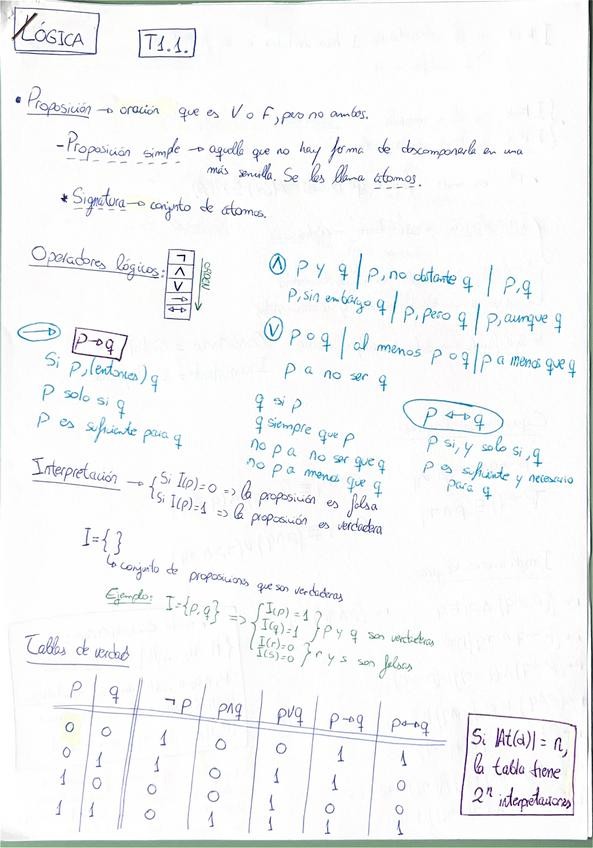 LÓGICA
T1.1.
• Proposición → oración que es V o F, pero no ambos.
- Proposición simple → aquella que no hay forma de descomponerla en una
más sencilla. Se les llama átomos.
* Signatura → conjunto de átomos.
Operadores lógicos:
¬
∧
∨
→
↔
ORDEN
∧ p y q | p, no obstante q | p, q
p, sin embargo q | p, pero q | p, aunque q
∨ p o q | al menos p o q | p a menos que q
p a no ser q
→ p → q
Si p, (entonces) q
p solo si q
p es suficiente para q
q si p
q siempre que p
no p a no ser que q
no p a menos que q
p ↔ q
p si, y solo si, q
p es suficiente y necesario
para q
Interpretación → { Si I(p)=0 => la proposición es falsa
Si I(p)=1 => la proposición es verdadera
I = { }
↳ conjunto de proposiciones que son verdaderas
Ejemplo: I = {p, q} => { I(p) = 1
I(q) = 1 } p y q son verdaderas
I(r) = 0
I(s) = 0 } r y s son falsas
Tablas de verdad
p | q | ¬p | p∧q | p∨q | p→q | p↔q
0 0 1 0 0 1 1
0 1 1 0 1 1 0
1 0 0 0 1 0 0
1 1 0 1 1 1 1
Si |At(α)| = n,
la tabla tiene
2ⁿ interpretaciones